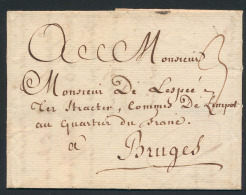 A Monsieur
Monsieur De Lespéé
Ter Straeter, Commis De L'impot
au Quartier du franc
à
Bruges